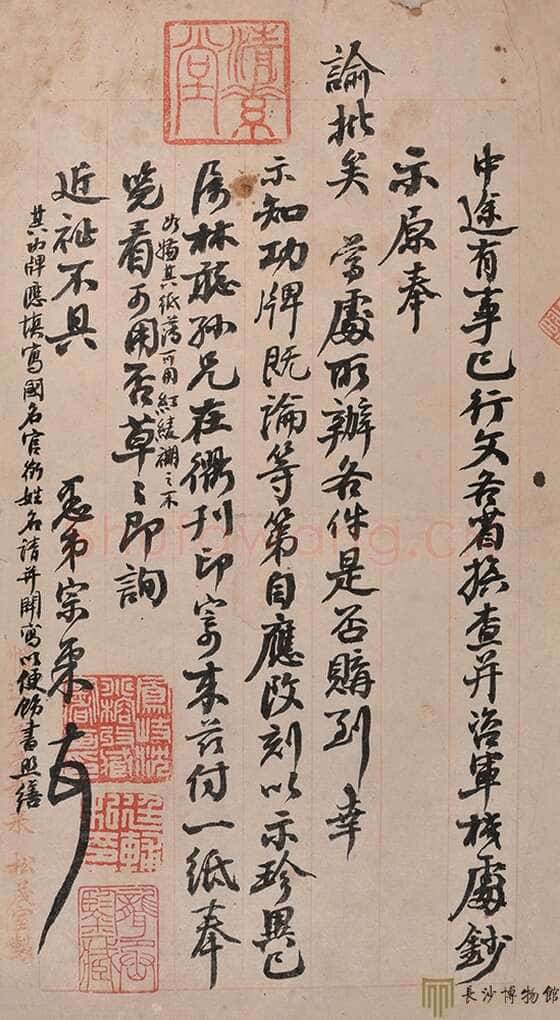 中途有事已行文各省援查并咨軍机處鈔
示原奉
諭批矣 當處所辦各件是否購到 幸
示知功牌既論等第自應改刻以示珍異已
屬林聽孫兄在衢刊印寄來茲付一紙奉
覽看可用否草〻即詢
如嫌其紙薄可用紅綾裱之不
近祉不具 愚弟宗末
其功牌應填寫國名官銜姓名請并開寫以便飭書照繕
清京堂
松茂室製
長沙博物館